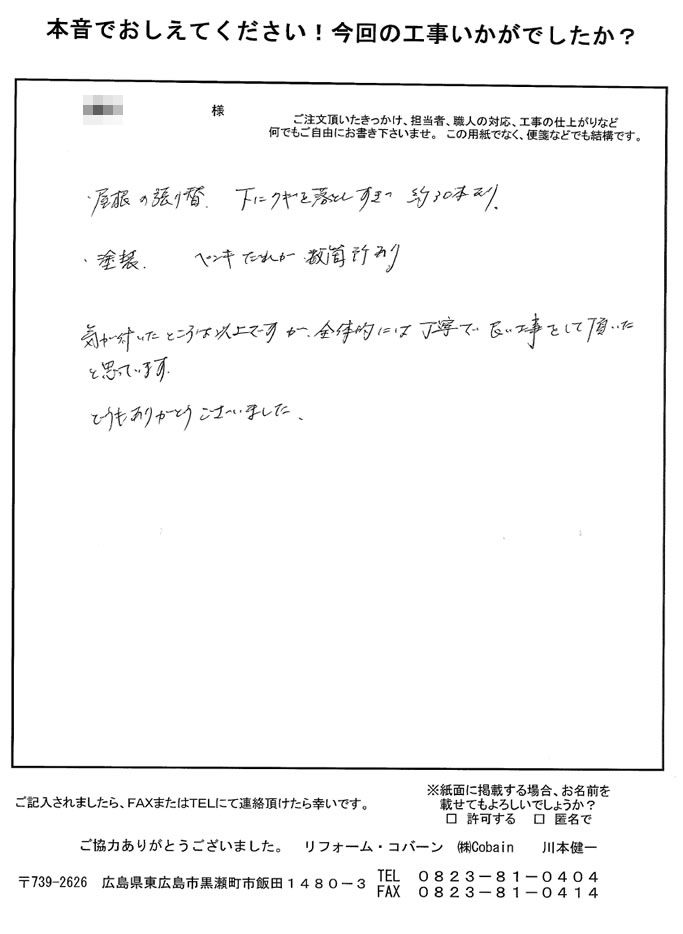 本音でおしえてください！今回の工事いかがでしたか？
様
ご注文頂いたきっかけ、担当者、職人の対応、工事の仕上がりなど
何でもご自由にお書き下さいませ。この用紙でなく、便箋などでも結構です。
・屋根の張り替 下にクギを落としすぎ 約30本あり、
・塗装. ペンキたれが 数箇所あり
気が付いたところは以上ですが、全体的には丁寧で良い工事をして頂いた
と思っています.
どうもありがとうございました、
ご記入されましたら、FAXまたはTELにて連絡頂けたら幸いです。
※紙面に掲載する場合、お名前を
載せてもよろしいでしょうか？
□ 許可する □ 匿名で
ご協力ありがとうございました。 リフォーム・コバーン ㈱Cobain 川本健一
〒739-2626 広島県東広島市黒瀬町市飯田１４８０－３
TEL ０８２３－８１－０４０４
FAX ０８２３－８１－０４１４